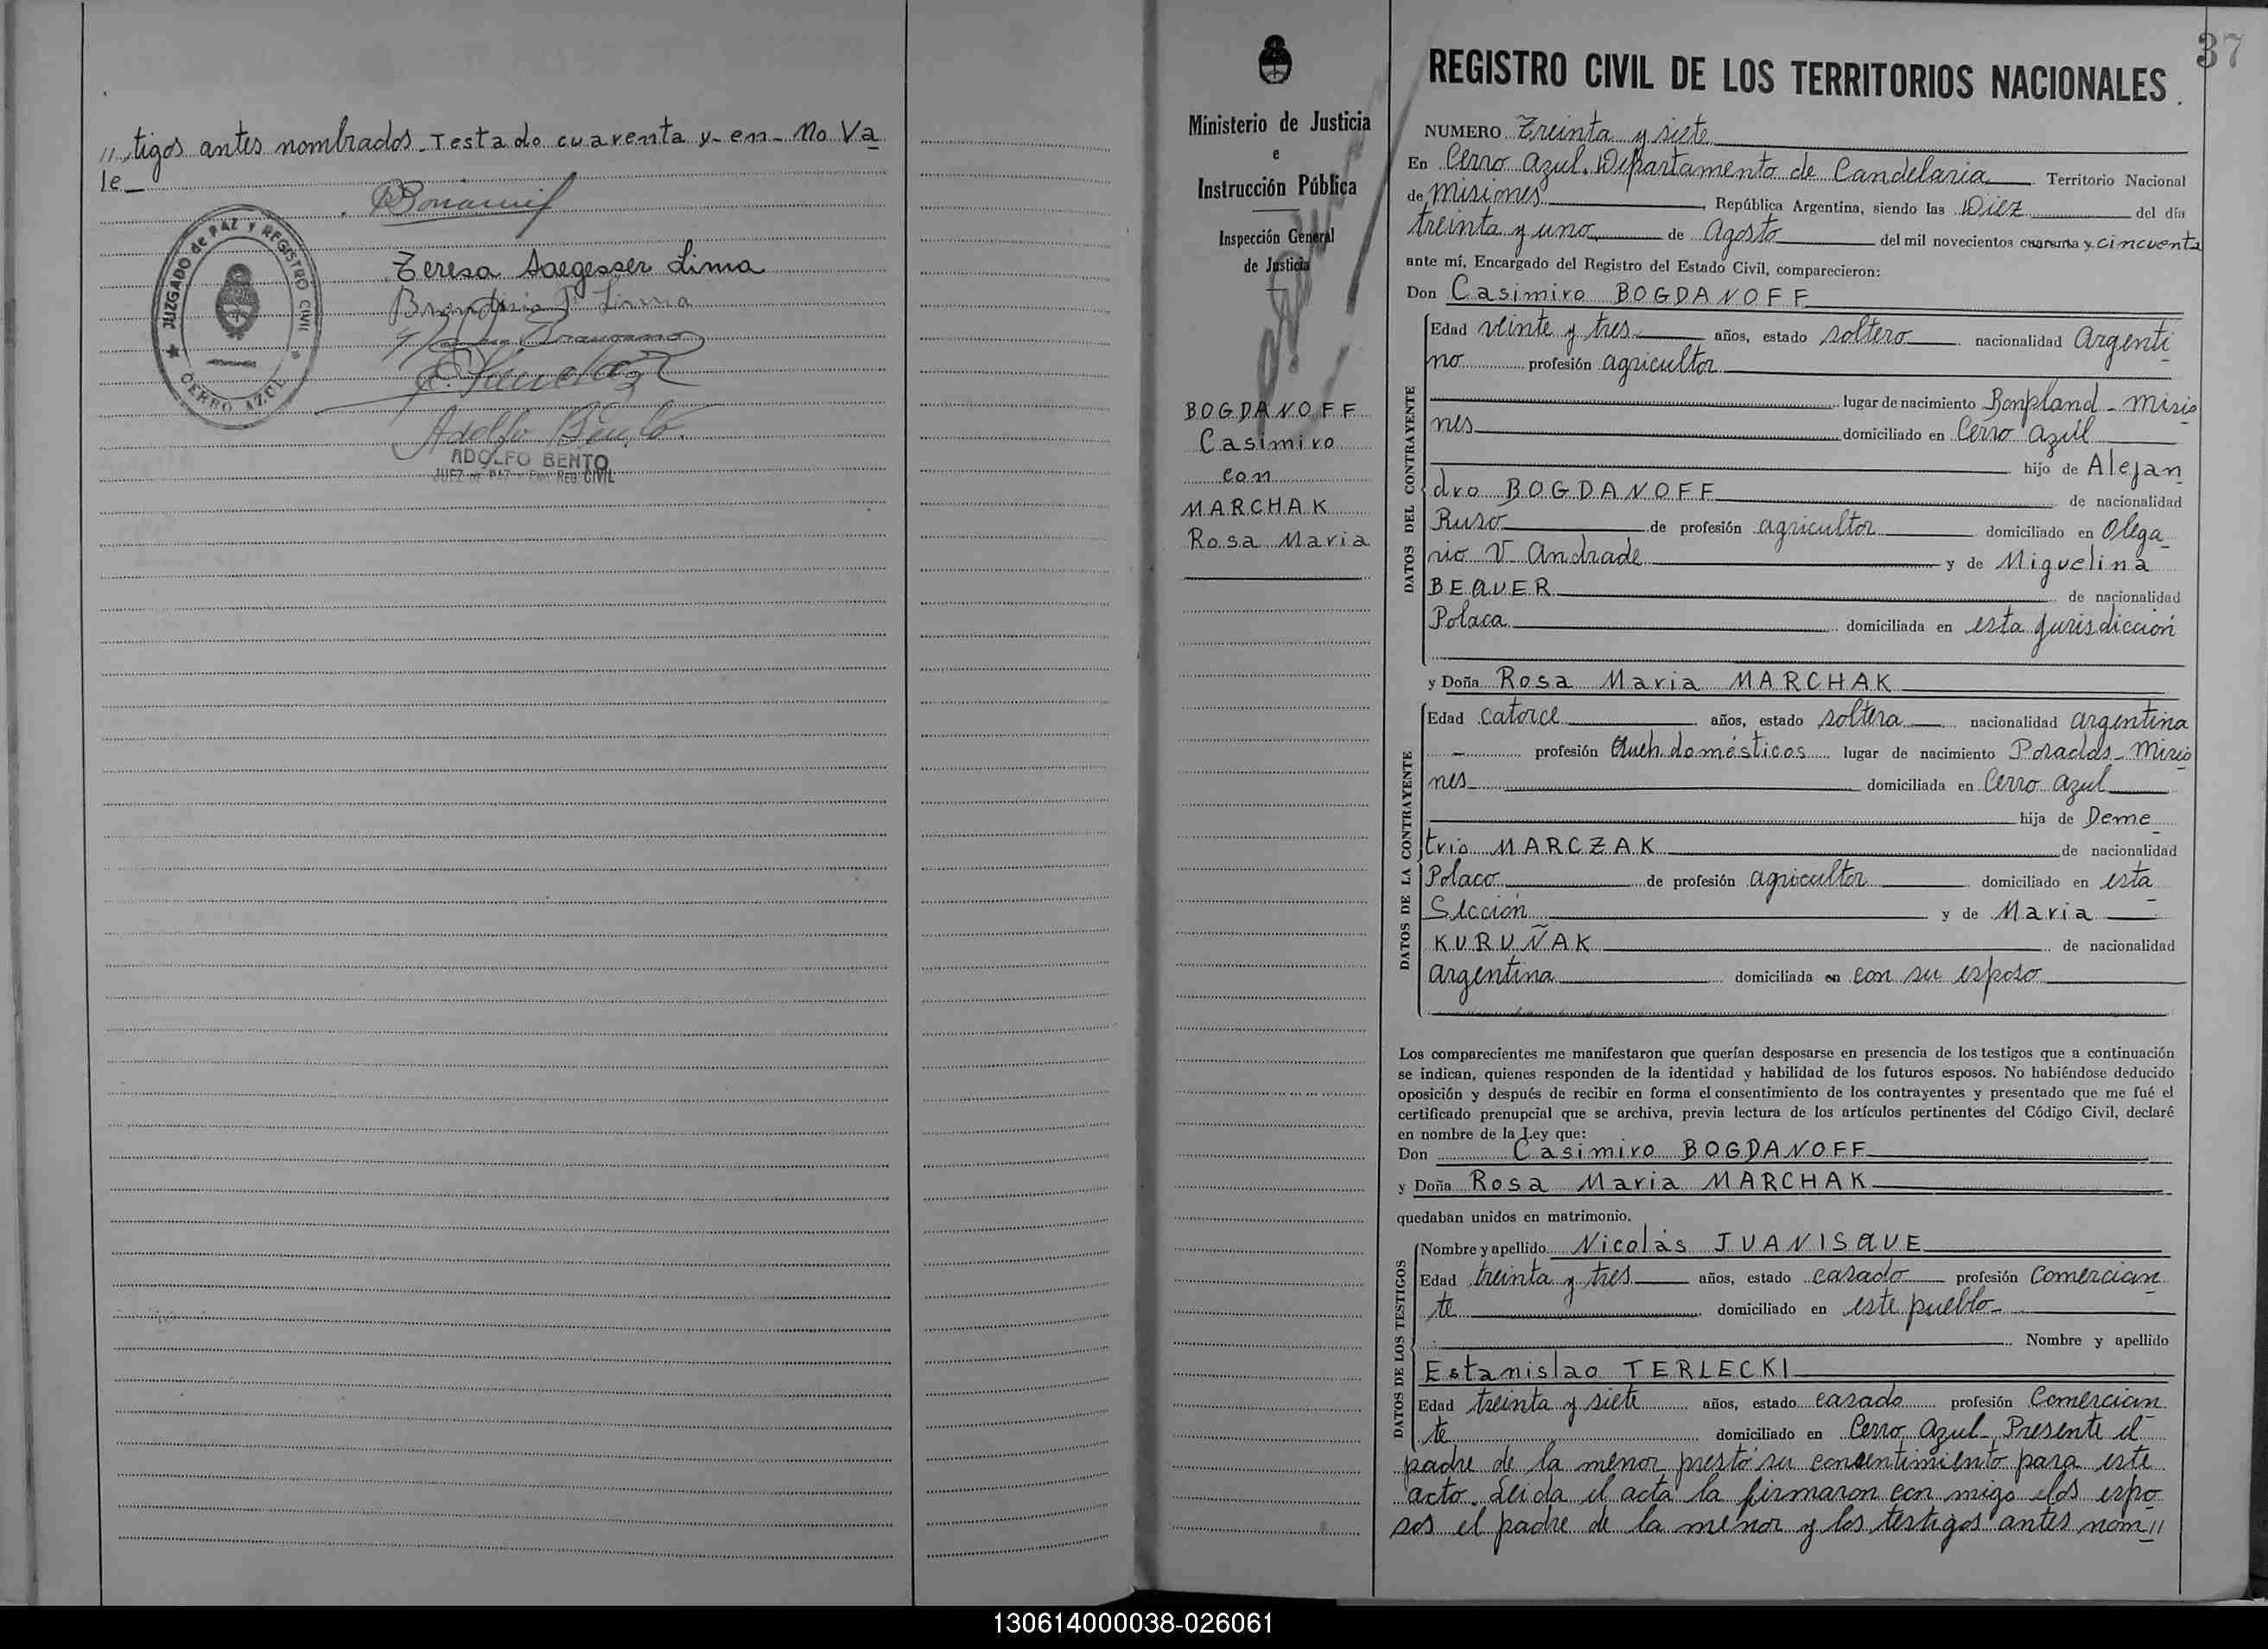 // tigos antes nombrados. Testado cuarenta y- en- No Va
le
JUZGADO de PAZ Y REGISTRO CIVIL
CERRO AZUL
Teresa Saegesser Lima
Lima
Adolfo Bento
ADOLFO BENTO
JUEZ DE PAZ Y ENC. REG. CIVIL
Ministerio de Justicia
e
Instrucción Pública
Inspección General
de Justicia
BOGDANOFF
Casimiro
con
MARCHAK
Rosa Maria
37
REGISTRO CIVIL DE LOS TERRITORIOS NACIONALES
NUMERO Treinta y siete
En Cerro Azul. Departamento de Candelaria Territorio Nacional
de Misiones, República Argentina, siendo las Diez del día
treinta y uno de Agosto del mil novecientos cuarenta y cincuenta
ante mí, Encargado del Registro del Estado Civil, comparecieron:
Don Casimiro BOGDANOFF
DATOS DEL CONTRAYENTE
Edad veinte y tres años, estado soltero nacionalidad Argenti
no profesión agricultor
lugar de nacimiento Bonpland - Misio
nes domiciliado en Cerro Azul
hijo de Alejan
dro BOGDANOFF de nacionalidad
Ruso de profesión agricultor domiciliado en Olega
rio V. Andrade y de Miguelina
BEQUER de nacionalidad
Polaca domiciliada en esta jurisdicción
y Doña Rosa Maria MARCHAK
DATOS DE LA CONTRAYENTE
Edad catorce años, estado soltera nacionalidad argentina
- profesión Queh. domésticos lugar de nacimiento Posadas - Misio
nes domiciliada en Cerro Azul
hija de Deme
trio MARCZAK de nacionalidad
Polaco de profesión agricultor domiciliado en esta
Sección y de Maria
KURUÑAK de nacionalidad
argentina domiciliada en con su esposo
Los comparecientes me manifestaron que querían desposarse en presencia de los testigos que a continuación
se indican, quienes responden de la identidad y habilidad de los futuros esposos. No habiéndose deducido
oposición y después de recibir en forma el consentimiento de los contrayentes y presentado que me fué el
certificado prenupcial que se archiva, previa lectura de los artículos pertinentes del Código Civil, declaré
en nombre de la Ley que:
Don Casimiro BOGDANOFF
y Doña Rosa Maria MARCHAK
quedaban unidos en matrimonio.
DATOS DE LOS TESTIGOS
Nombre y apellido Nicolás JUANISQUE
Edad treinta y tres años, estado casado profesión Comercian
te domiciliado en este pueblo
Nombre y apellido
Estanislao TERLECKI
Edad treinta y siete años, estado casado profesión Comercian
te domiciliado en Cerro Azul. Presente el
padre de la menor prestó su consentimiento para este
acto. Leida el acta la firmaron con migo los espo
sos el padre de la menor y los testigos antes nom //
130614000038-026061